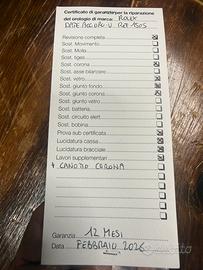 Certificato di garanzia per la riparazione
del orologio di marca: ROLEX
DATE ACCIAIO-U REF 1505
Revisione completa
Sost. Movimento
Sost. Molla
Sost. tiges
Sost. corona
Sost. asse bilanciere
Sost. vetro
Sost. giunto fondo
Sost. giunto corona
Sost. giunto vetro
Sost. batteria
Sost. circuito elett
Sost. bobina
Prova sub certificata
Lucidatura cassa
Lucidatura bracciale
Lavori supplementari
+ CANOTTO CORONA
Garanzia 12 MESI
Data FEBBRAIO 2026
subito